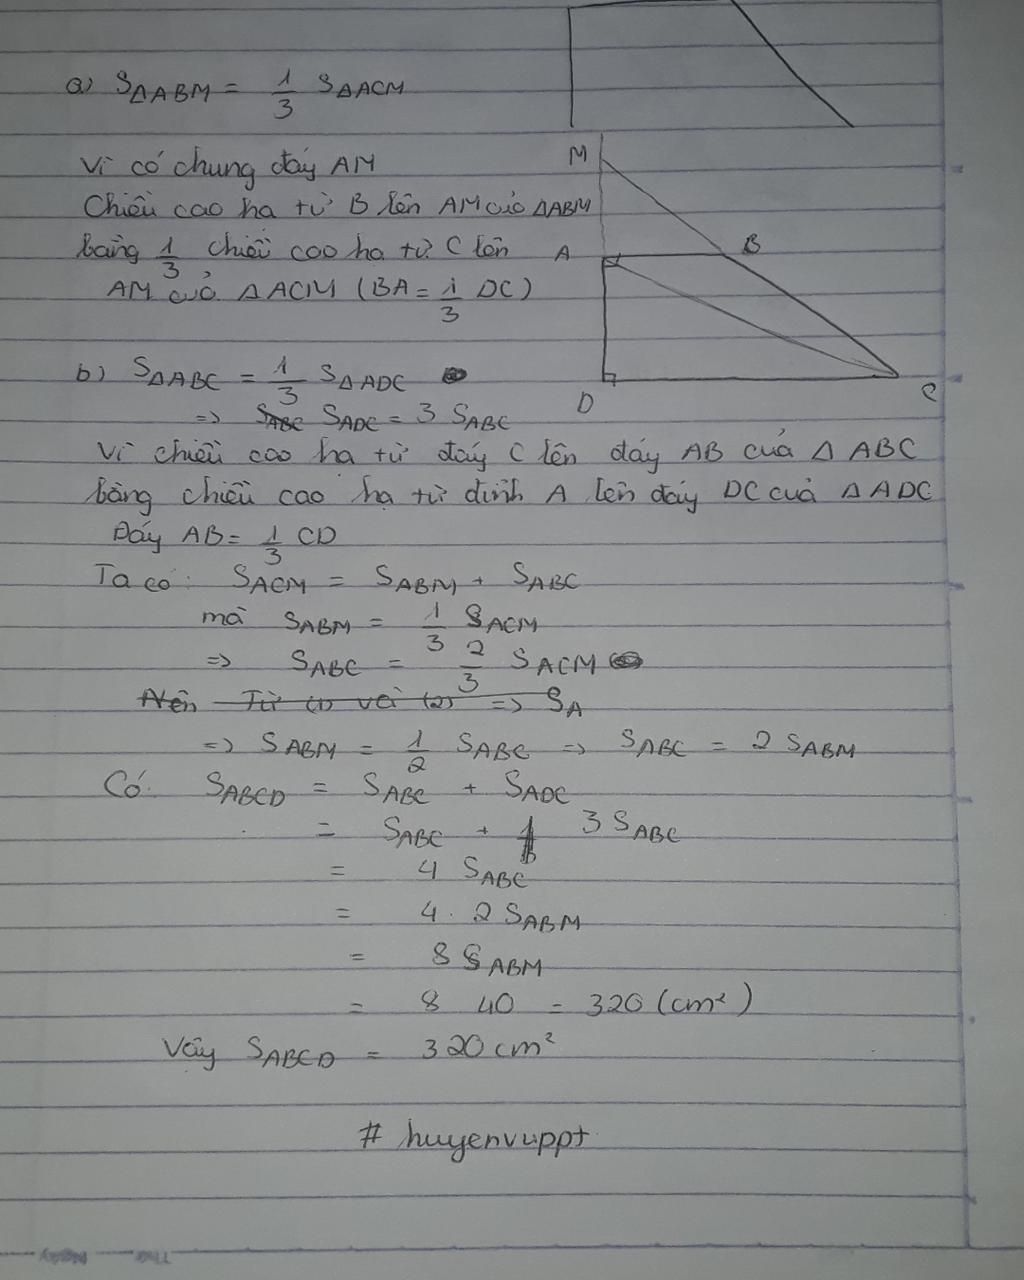 a) SΔABM = 1/3 SΔACM
Vì có chung đáy AM
Chiều cao hạ từ B lên AM của ΔABM
bằng 1/3 chiều cao hạ từ C lên
AM của ΔACM (BA = 1/3 DC)
M
A
B
D
C
b) SΔABC = 1/3 SΔADC
=> SABC SADC = 3 SABC
Vì chiều cao hạ từ đáy C lên đáy AB của Δ ABC
bằng chiều cao hạ từ đỉnh A lên đáy DC của Δ ADC
Đáy AB = 1/3 CD
Ta có: SACM = SABM + SABC
mà SABM = 1/3 SACM
=> SABC = 2/3 SACM
Nên Từ (1) và (2) => SA
=> SABM = 1/2 SABC => SABC = 2 SABM
Có: SABCD = SABC + SADC
= SABC + 3 SABC
= 4 SABC
= 4 . 2 SABM
= 8 SABM
= 8 40 = 320 (cm²)
Vậy SABCD = 320 cm²
# huyenvuppt
Thứ Ngày